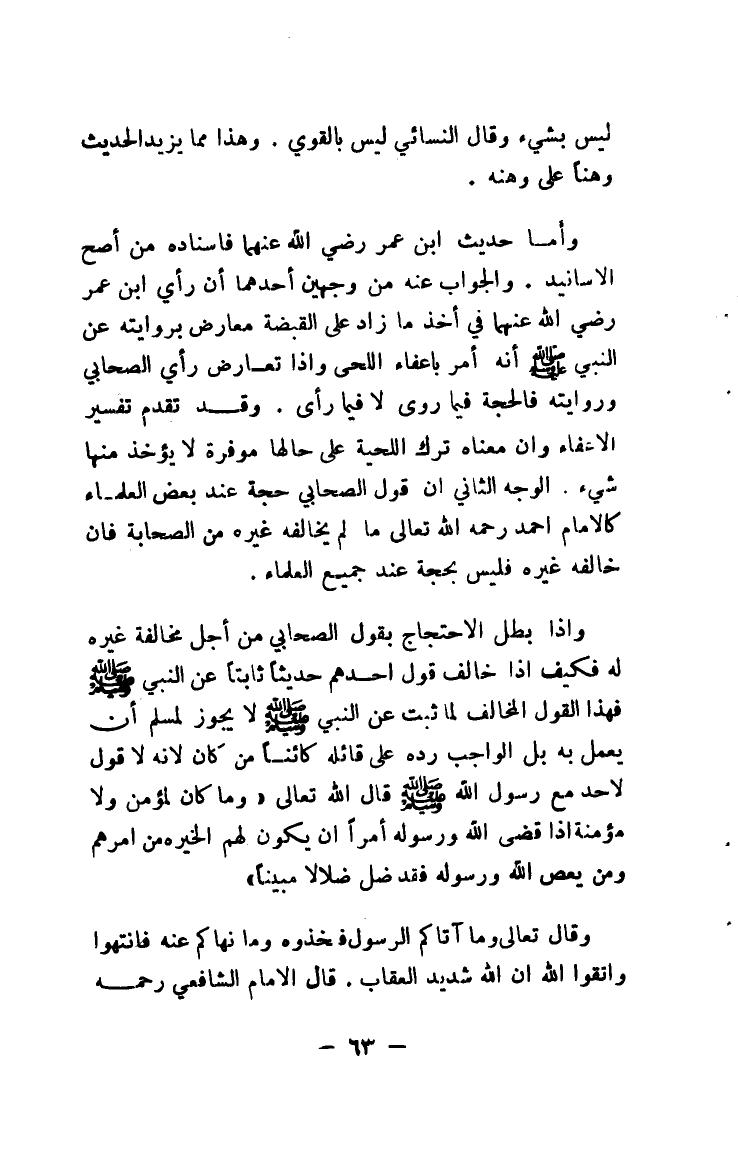 ليس بشيء وقال النسائي ليس بالقوي . وهذا مما يزيدالحديث
وهناً على وهنه .
وأمـا حديث ابن عمر رضي الله عنهما فاسناده من أصح
الاسانيد . والجواب عنه من وجهين أحدهما أن رأي ابن عمر
رضي الله عنهما في أخذ ما زاد على القبضة معارض بروايته عن
النبي ﷺ أنه أمر باعفاء اللحى واذا تعـارض رأي الصحابي
وروايته فالحجة فيما روى لا فيما رأى . وقـــد تقدم تفسير
الاعفاء وان معناه ترك اللحية على حالها موفرة لا يؤخذ منها
شيء . الوجه الثاني ان قول الصحابي حجة عند بعض العلمـاء
كالامام احمد رحمه الله تعالى ما لم يخالفه غيره من الصحابة فان
خالفه غيره فليس بحجة عند جميـع العلماء .
واذا بطل الاحتجاج بقول الصحابي من أجل مخالفة غيره
له فكيف اذا خالف قول احـدهم حديثاً ثابتاً عن النبي ﷺ
فهذا القول المخالف لما ثبت عن النبي ﷺ لا يجوز لمسلم أن
يعمل به بل الواجب رده على قائله كائنـاً من كان لانه لا قول
لاحد مع رسول الله ﷺ قال الله تعالى « وما كان لمؤمن ولا
مؤمنة اذا قضى الله ورسوله أمراً ان يكون لهم الخيره من امرهم
ومن يعص الله ورسوله فقد ضل ضلالا مبيناً»
وقال تعالى وما آتاكم الرسول فخذوه وما نهاكم عنه فانتهوا
واتقوا الله ان الله شديد العقاب . قال الامام الشافعي رحمـــه
– ٦٣ –